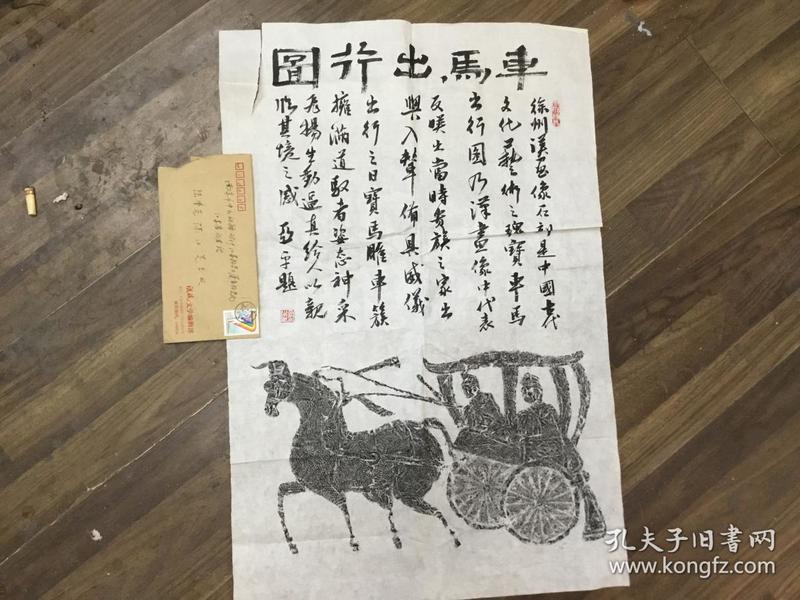 車馬出行圖
徐州漢畫像石刻是中國古代
文化藝術之瑰寶車馬
出行圖乃漢畫像中代表
反映出當時貴族之家出
與入輦備具威儀
出行之日寶馬雕車簇
擁滿道馭者姿态神采
飛揚生動逼真給人以親
臨其境之感 亞平題
文学编辑部
孔夫子旧书网
www.kongfz.com